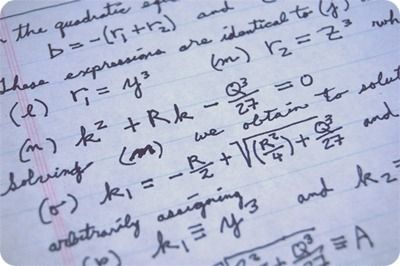 n the quadratic eq
b = -(r₁+r₂) and
These expressions are identical to (j)
(l) r₁ = y³ (m) r₂ = z³ wh
(n) k² + Rk - Q³/27 = 0
Solving (m) we obtain to solut
(o) k₁ = -R/2 + √((R²/4) + Q³/27) and
arbitrarily assigning
(p) k₁ ≡ y³ and k₂ =
Q³/27 ≡ A